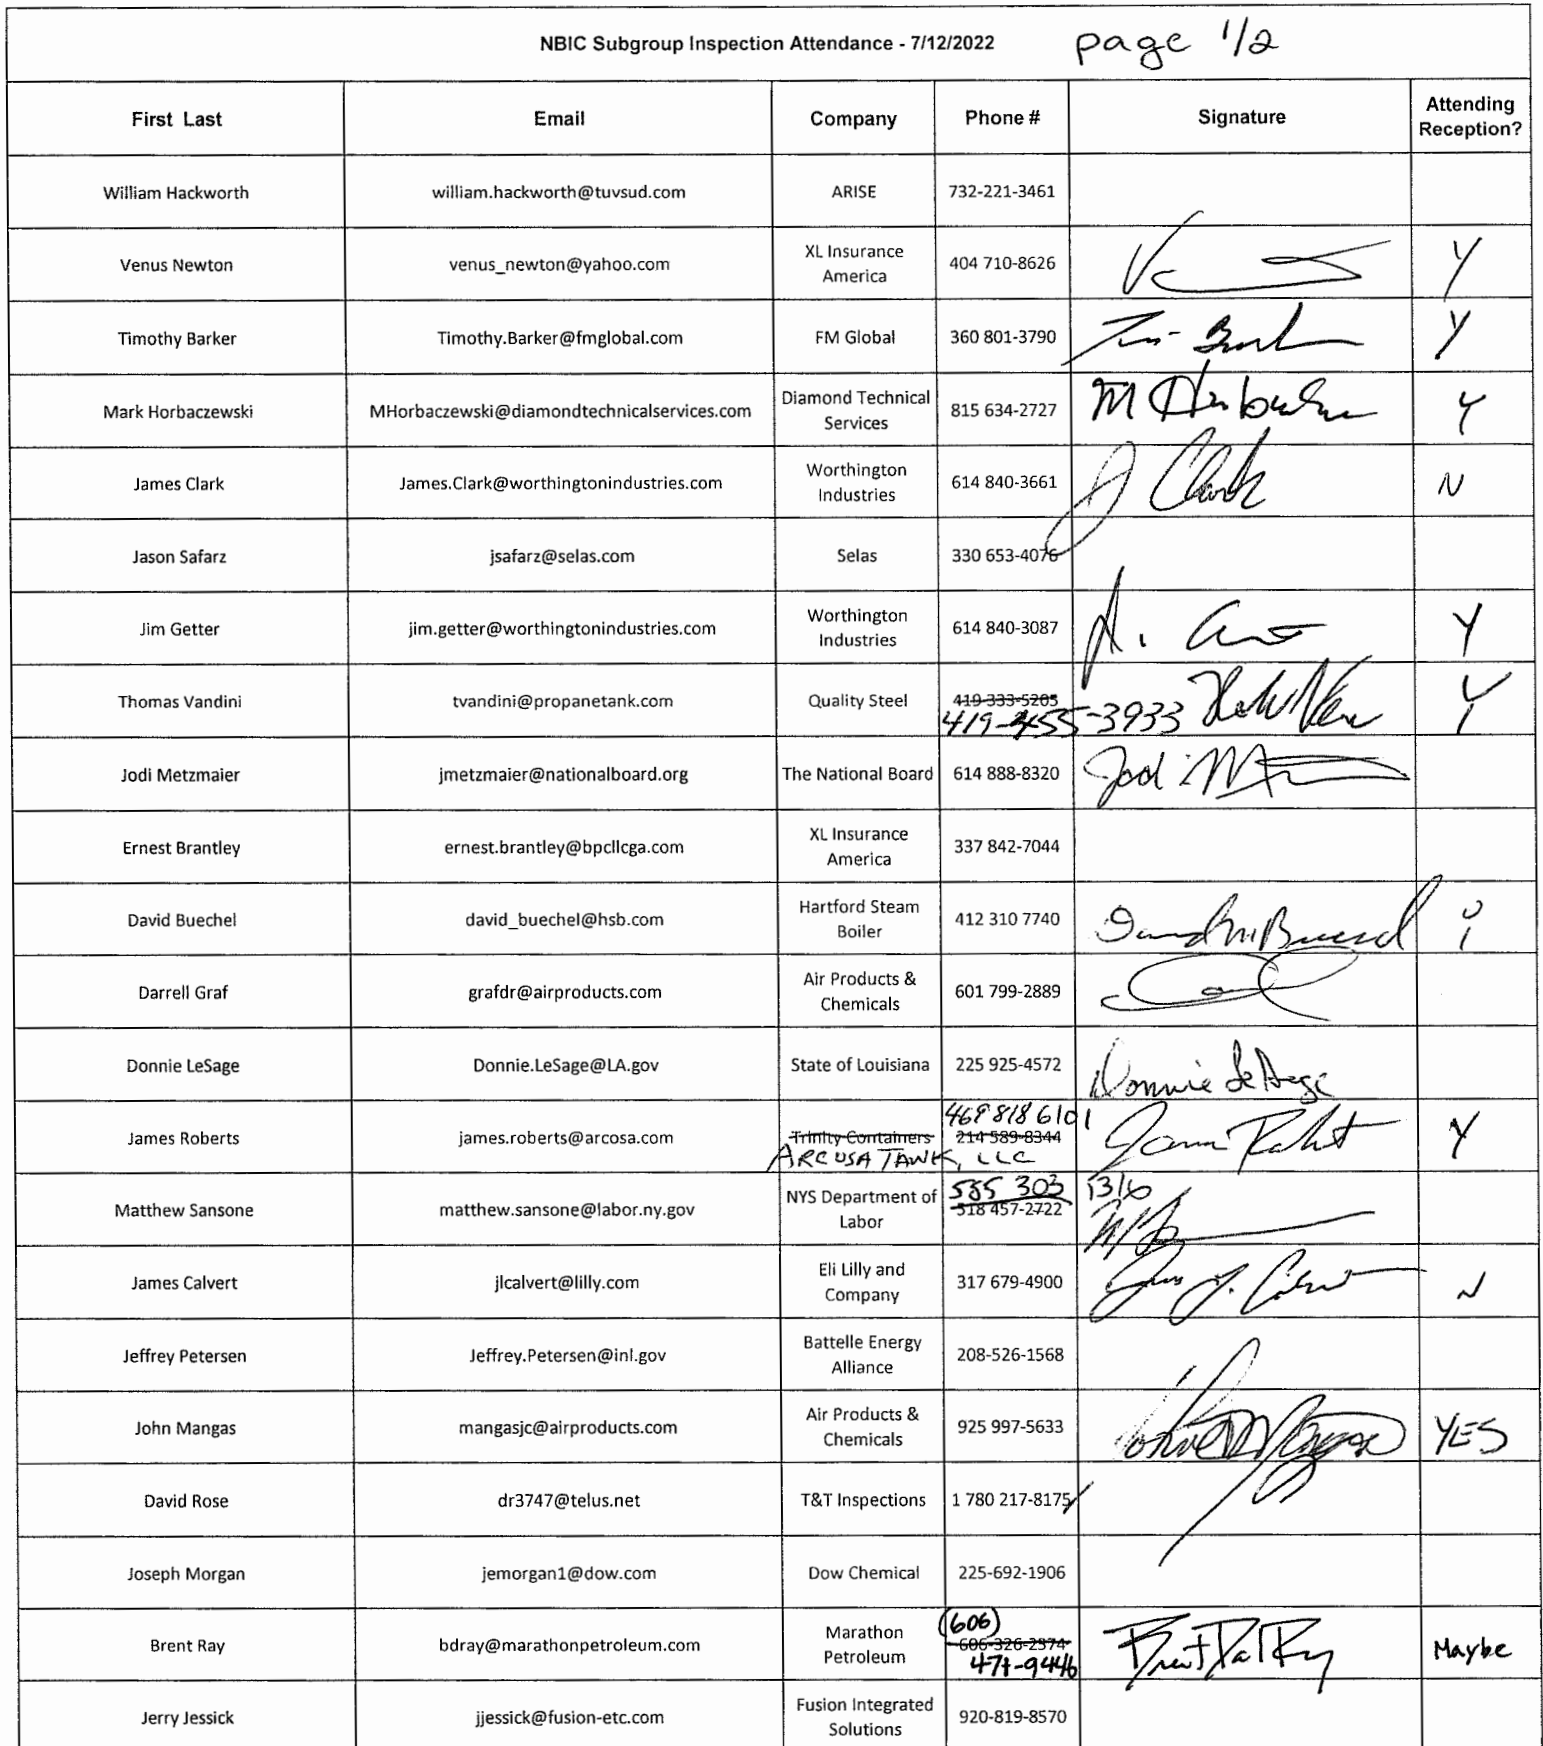 NBIC Subgroup Inspection Attendance - 7/12/2022 page 1/2
First Last Email Company Phone # Signature Attending Reception?
William Hackworth william.hackworth@tuvsud.com ARISE 732-221-3461
Venus Newton venus_newton@yahoo.com XL Insurance America 404 710-8626 Y
Timothy Barker Timothy.Barker@fmglobal.com FM Global 360 801-3790 Y
Mark Horbaczewski MHorbaczewski@diamondtechnicalservices.com Diamond Technical Services 815 634-2727 Y
James Clark James.Clark@worthingtonindustries.com Worthington Industries 614 840-3661 J Clark N
Jason Safarz jsafarz@selas.com Selas 330 653-4076
Jim Getter jim.getter@worthingtonindustries.com Worthington Industries 614 840-3087 Y
Thomas Vandini tvandini@propanetank.com Quality Steel 419-333-5205 419-455-3933 Y
Jodi Metzmaier jmetzmaier@nationalboard.org The National Board 614 888-8320 Jodi
Ernest Brantley ernest.brantley@bpcllcga.com XL Insurance America 337 842-7044
David Buechel david_buechel@hsb.com Hartford Steam Boiler 412 310 7740
Darrell Graf grafdr@airproducts.com Air Products & Chemicals 601 799-2889
Donnie LeSage Donnie.LeSage@LA.gov State of Louisiana 225 925-4572 Donnie LeSage
James Roberts james.roberts@arcosa.com Trinity Containers ARCOSA TANK, LLC 214 589-8344 469 818 6101 Y
Matthew Sansone matthew.sansone@labor.ny.gov NYS Department of Labor 518 457-2722 585 303 1316
James Calvert jlcalvert@lilly.com Eli Lilly and Company 317 679-4900 N
Jeffrey Petersen Jeffrey.Petersen@inl.gov Battelle Energy Alliance 208-526-1568
John Mangas mangasjc@airproducts.com Air Products & Chemicals 925 997-5633 YES
David Rose dr3747@telus.net T&T Inspections 1 780 217-8175
Joseph Morgan jemorgan1@dow.com Dow Chemical 225-692-1906
Brent Ray bdray@marathonpetroleum.com Marathon Petroleum 606-326-2374 (606) 471-9446 Maybe
Jerry Jessick jjessick@fusion-etc.com Fusion Integrated Solutions 920-819-8570